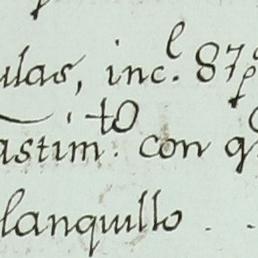 ulas, incl. 87
astimto. con q
lanquillo . .